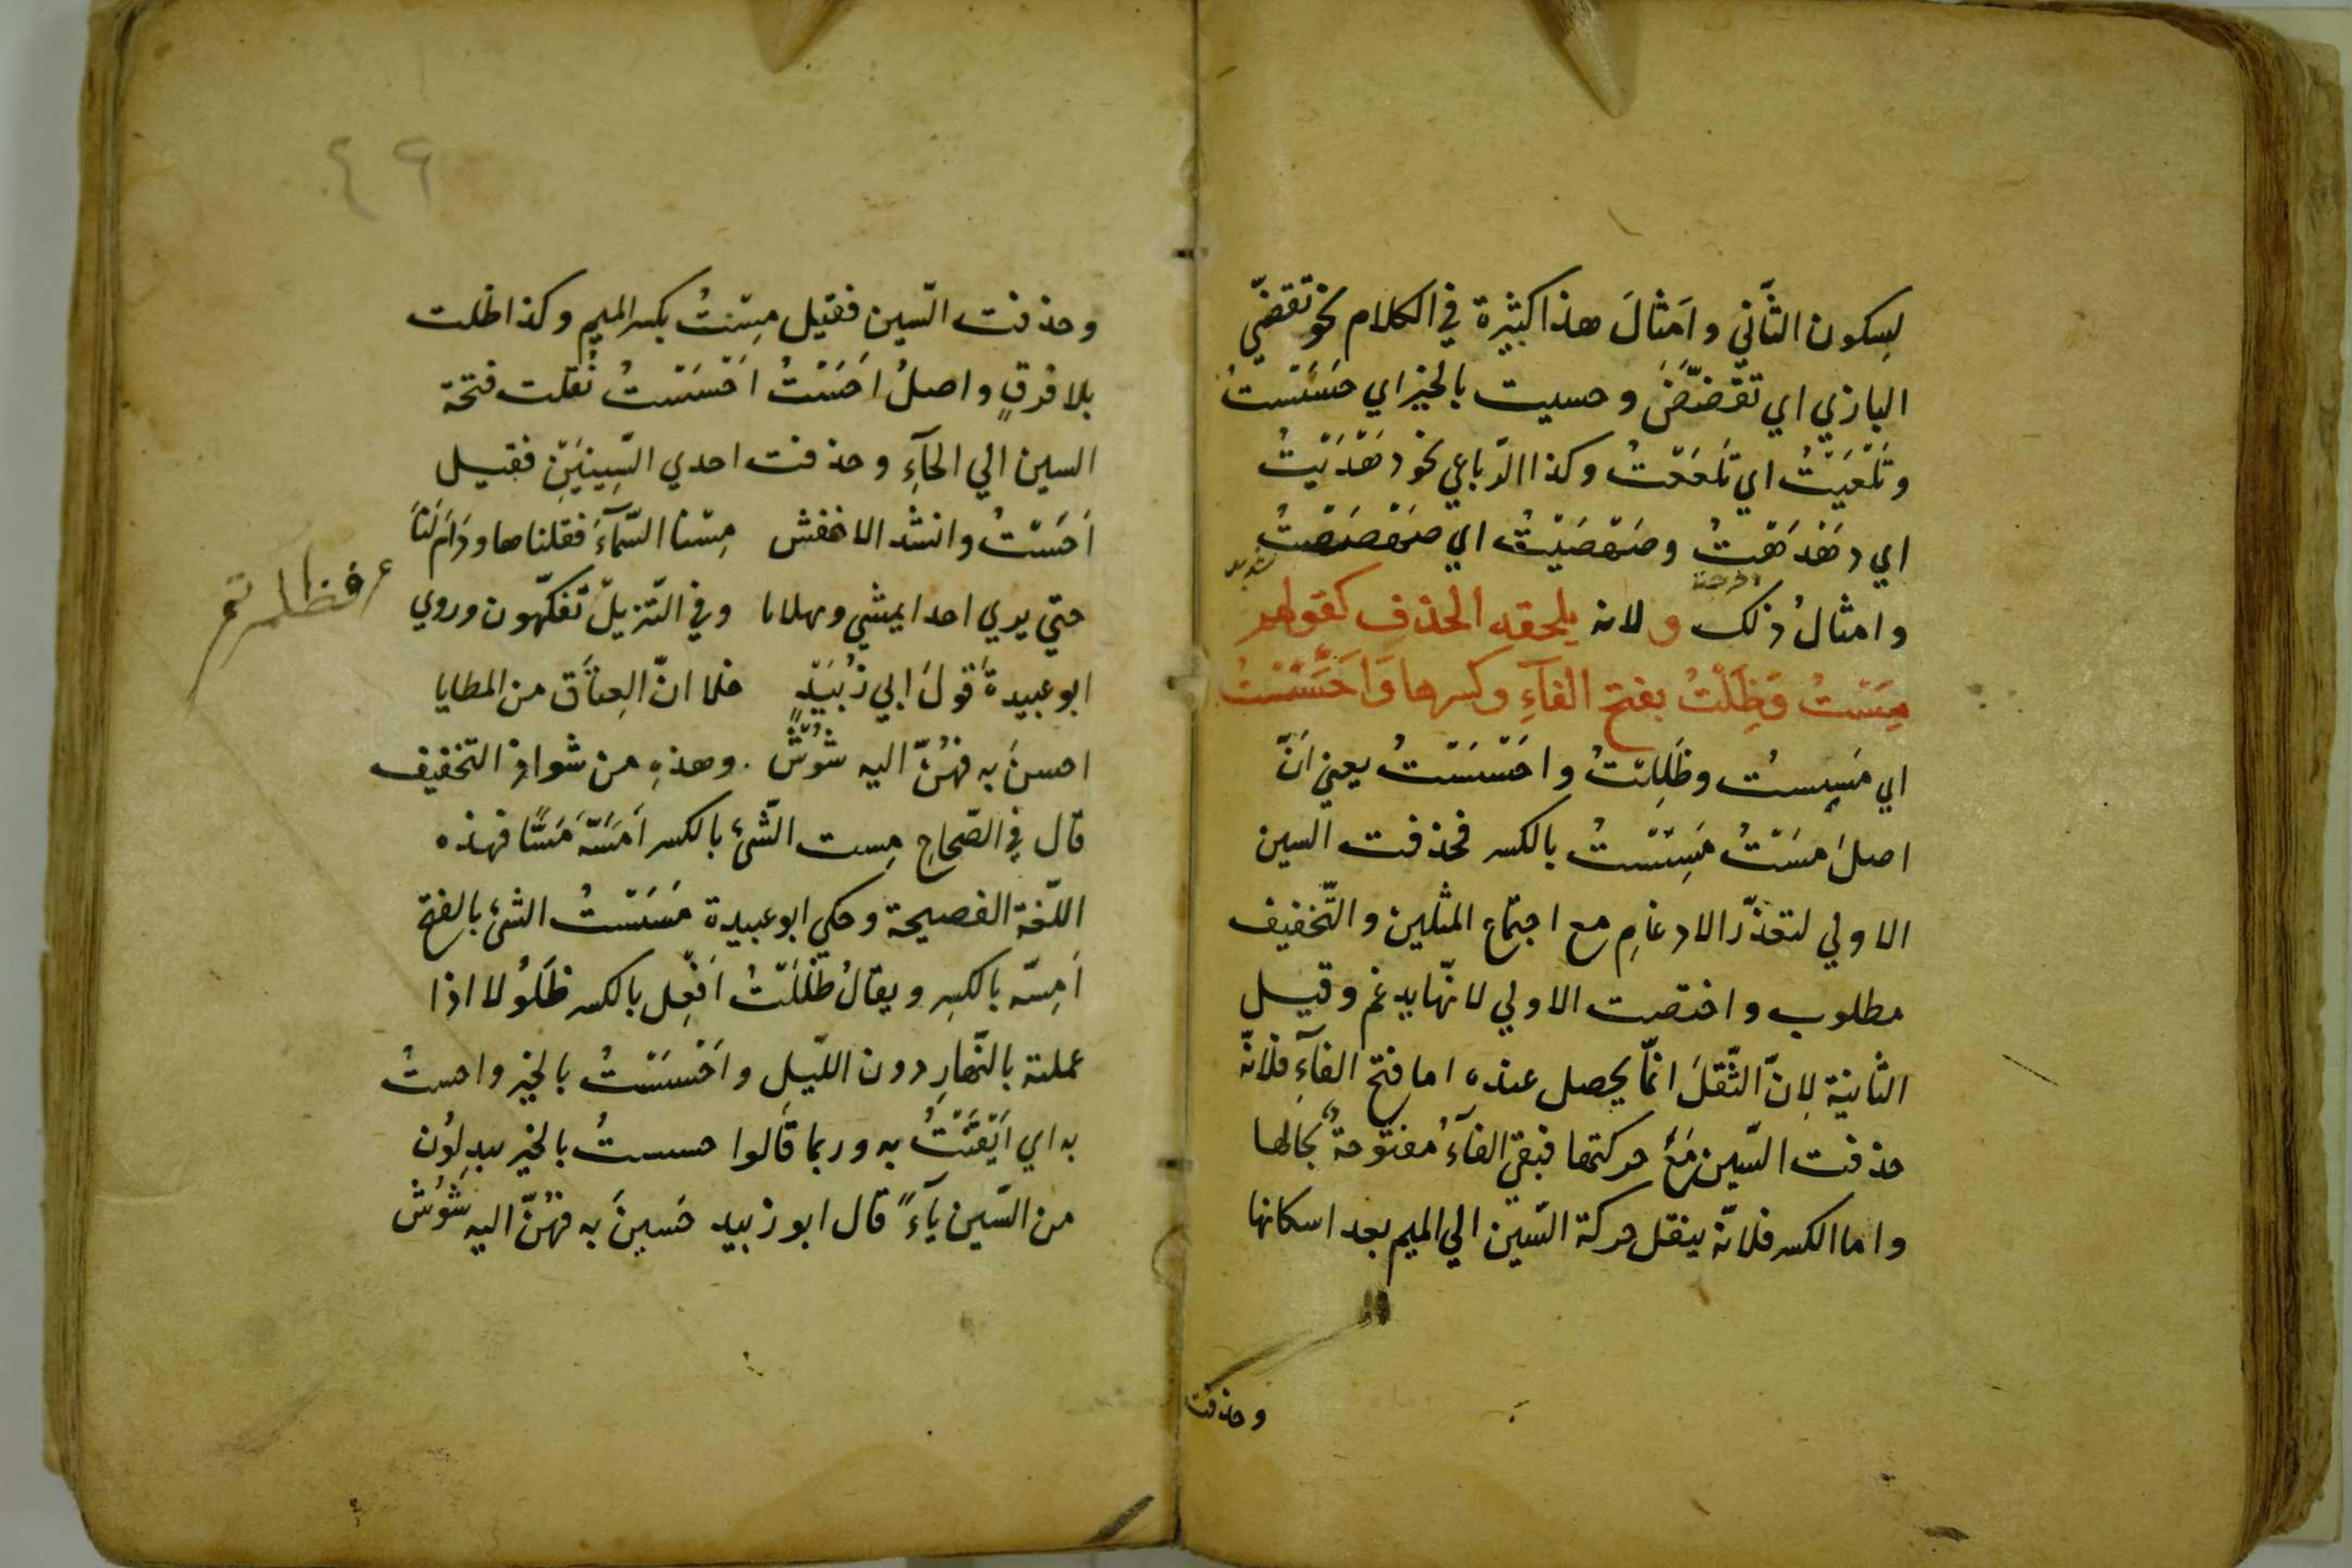 لِسكون الثّاني وامَثالَ هذا كثيرة في الكلام نحو تقضّي
البازي اي تقضّضَ وحسيت بالخير اي حسَسْتُ
وتَلَعّيَتُ اي تلعّعتُ وكذا الرّباعي نحو دَهْدَيْتُ
اي دهْدَهْتُ وصَهْصَيْتُ اي صَهْصَهْتُ
وامثالُ ذلك ولانه يلحقه الحذف كقولهم
مِسَْتُ وَظَِلْتُ بفتح الفاءِ وكسرها وَاَحَسْتُ
اي مَسِستُ وظَلِلتُ واحْسَسْتُ يعني اَنَّ
اصلَ مسَتُ مَسِسْتُ بالكسر فحذفت السين
الاولي لتعذّر الادغامِ مع اجتماع المثلين والتّخفيف
مطلوب واختصت الاولي لانّها يدغم وقيل
الثانية لاِنّ الثّقلَ انّما يحصل عنده اما فتح الفآءِ فلانّه
حذفت السّين مَعَ حركتها فبقي الفآءُ مفتوحةً بحالها
واما الكسر فلانّه ينقل حركة السّين الي الميم بعد اسكانها
وحذفت
٤٦
وحذفت السّين فقيل مِسْتُ بكسر الميم وكذا ظلت
بلا فرقٍ واصلُ احَسْتُ احْسَسْتُ نُقلت فتحة
السين الي الحآءِ وحذفت احدي السِّينيَنِ فقيل
اَحَسْتُ وانشد الاخفش مِسْنا السّمآءَ فنلناها ودَامَ لَنَا
حتي يري احدا يمشي وثهلانا وفي التّنزيل تَفكّهون وروي
فظلتم
ابو عبيدة قولَ ابي زُبَيْدٍ خلا انّ العِتاَق من المطايا
احسنَ به فهُنّ اليه شُوْسٌ. وهذهِ من شواذ التخفيف
قال في الصّحاح مِست الشّئ بالكسر اَمَسّه مَسًّا فهذه
اللّغة الفصيحة وحكي ابو عبيدة مَسَسْتُ الشئ بالفتح
اَمِسّه بالكسِر ويقالُ ظَلَلْتُ اَفْعِل بالكسر ظَلُولا اذا
عملته بالنّهارِ دون اللّيلِ واَحْسَسْتُ بالخير واحستُ
به اي اَيْقَنْتُ به وربما قَالوا حسستُ بالخير يبدِلوُن
من السّين يَآءً قال ابو زبيد حَسِينَ به فهُنّ اليه شُوْسٌ